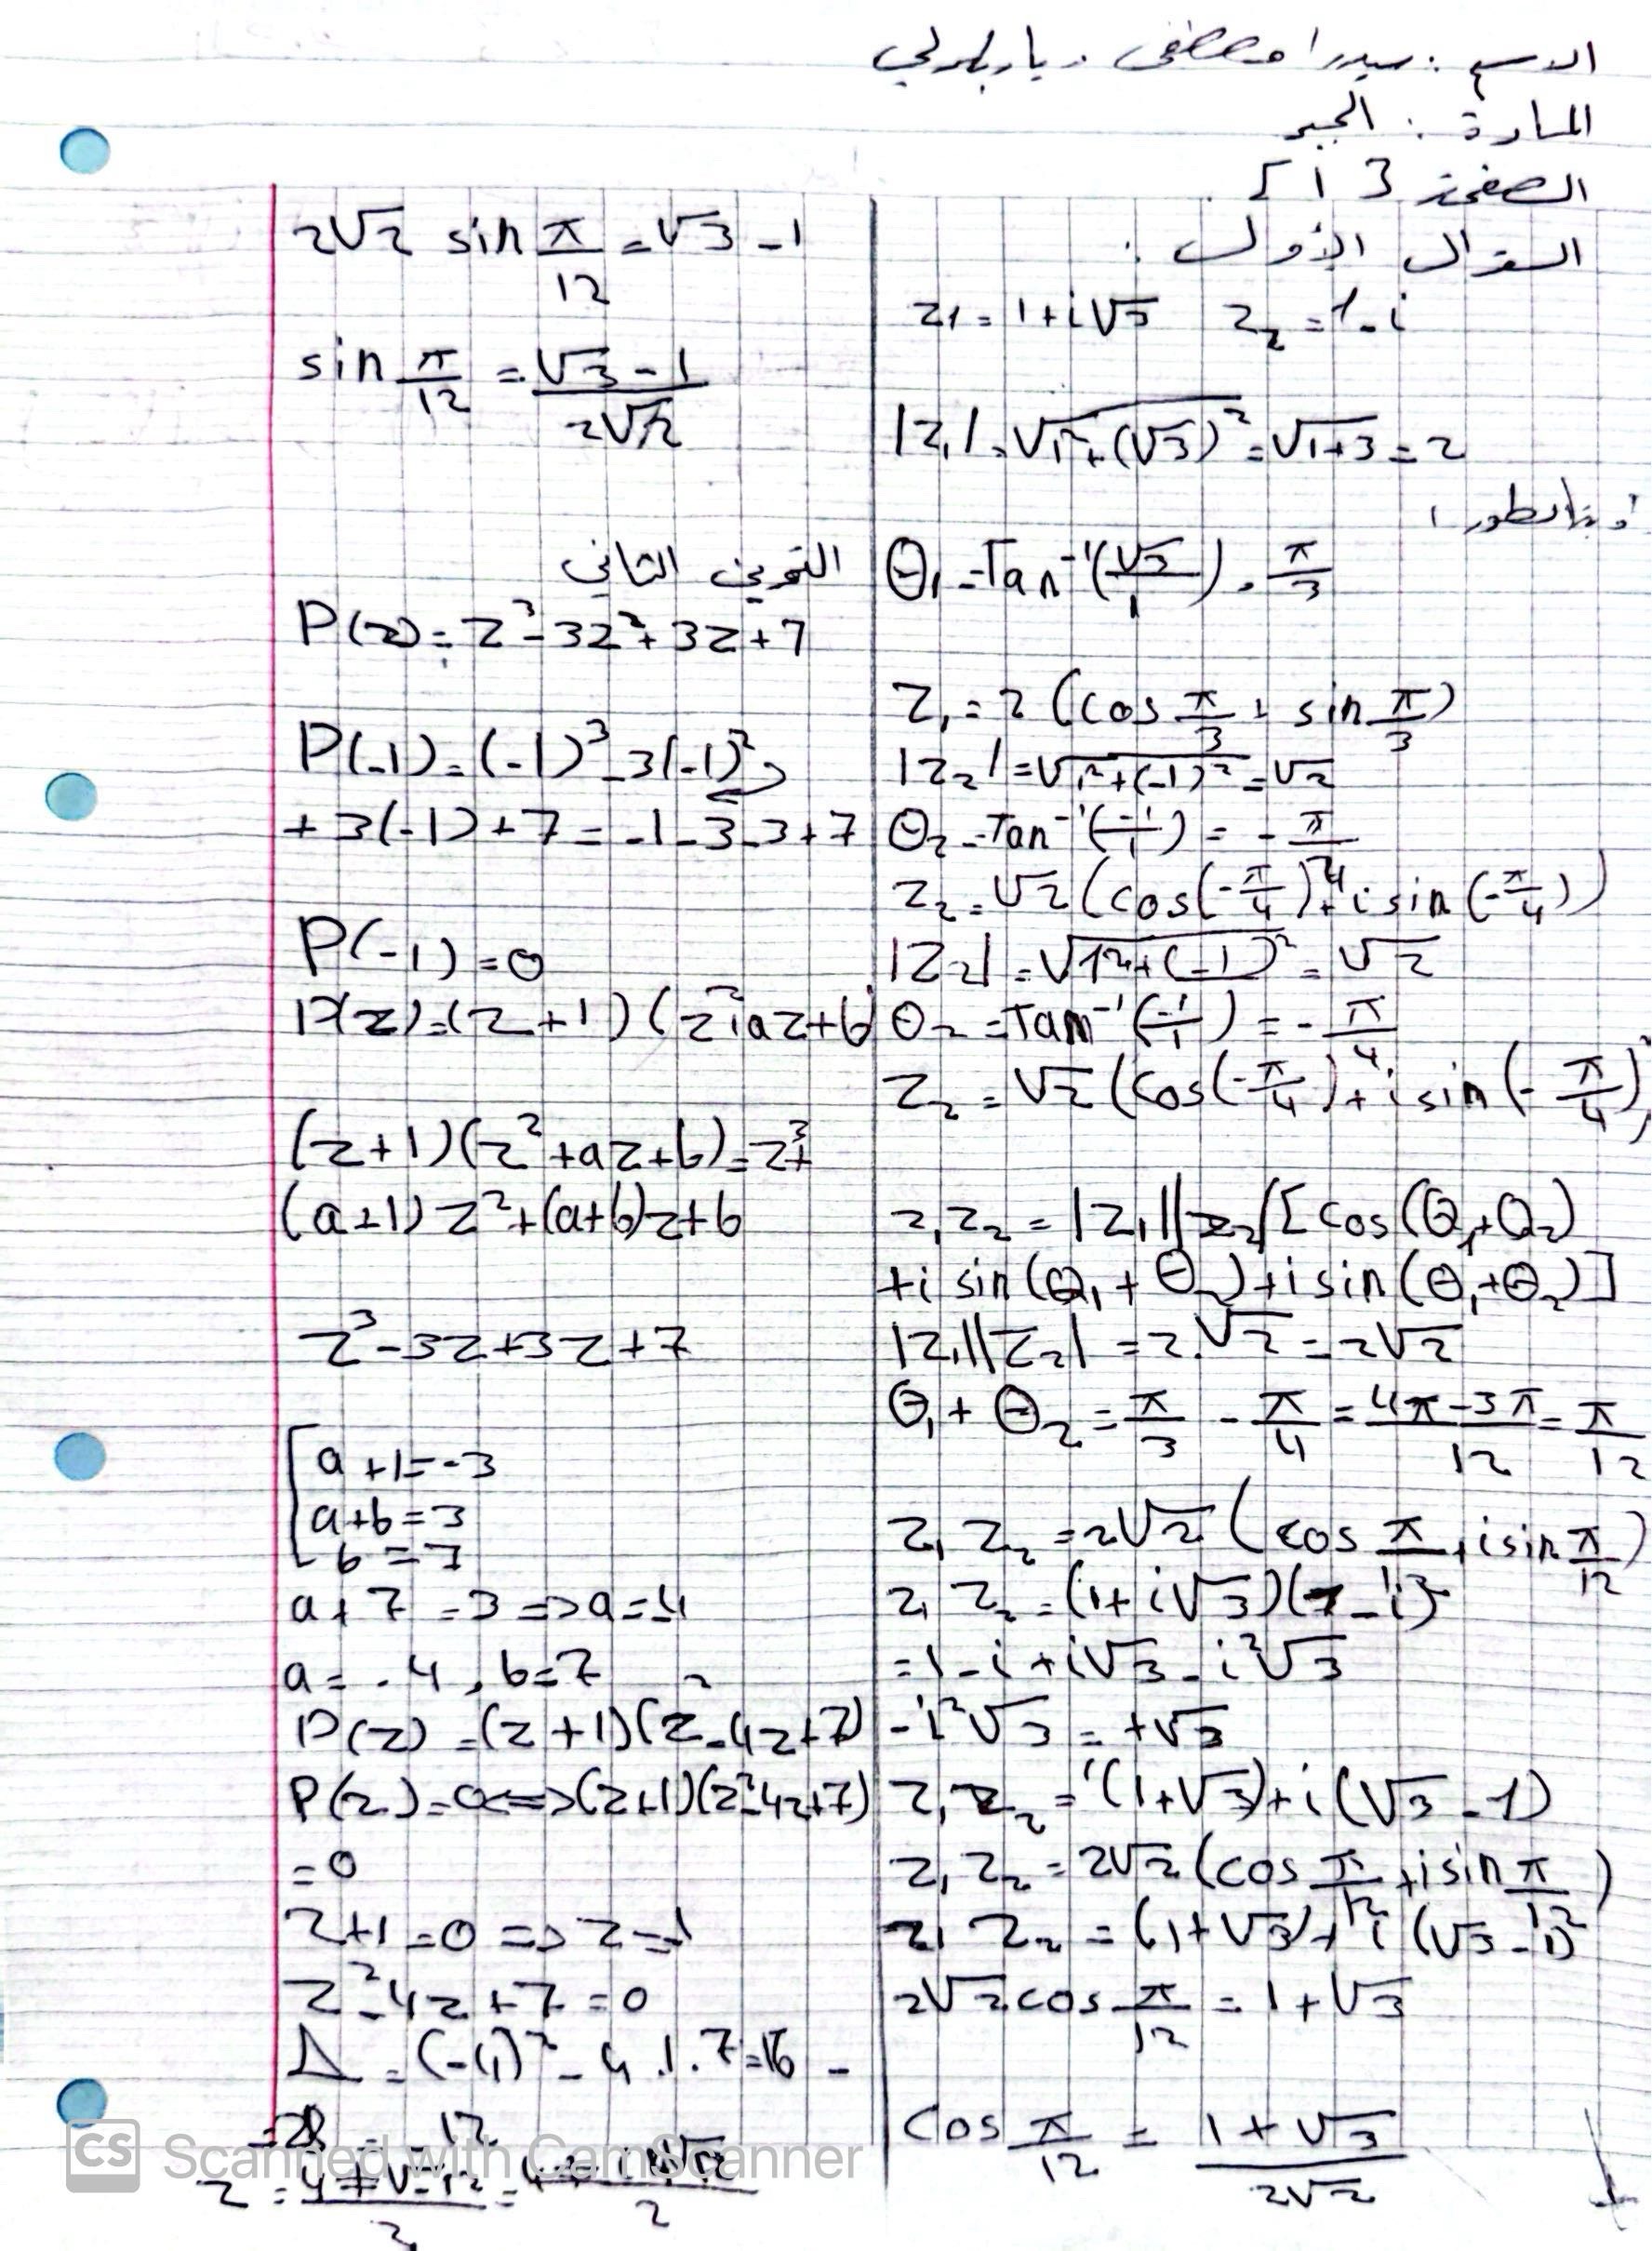 الاسم : سيدرا مصطفى
المادة : الجبر
الصفحة { 1 }
السؤال الأول :
z1 = 1+i√3 z₂ = 1-i
|z₁| = √1²+(√3)² = √1+3 = 2
θ₁ = Tan⁻¹(√3/1) = π/3
Z₁ = 2 (cos π/3 + sin π/3)
|z₂| = √1²+(-1)² = √2
θ₂ = Tan⁻¹(-1/1) = -π/4
z₂ = √2 (cos(-π/4) + i sin(-π/4))
|Z₂| = √1²+(-1)² = √2
θ₂ = Tan⁻¹(-1/1) = -π/4
Z₂ = √2 (cos(-π/4) + i sin(-π/4))
z₁z₂ = |z₁||z₂| [cos(θ₁+θ₂)
+i sin(θ₁+θ₂)+i sin(θ₁+θ₂)]
|z₁||z₂| = 2.√2 = 2√2
θ₁ + θ₂ = π/3 - π/4 = 4π-3π/12 = π/12
z₁ z₂ = 2√2 (cos π + i sin π/12)
z₁ z₂ = (1+i√3)(1-i)
=1-i+i√3-i²√3
-i²√3 = +√3
z₁ z₂ = (1+√3)+i(√3-1)
z₁ z₂ = 2√2 (cos π/12 + i sin π/12)
z₁ z₂ = (1+√3)+i(√3-1)
2√2 cos π/12 = 1+√3
cos π/12 = 1+√3/2√2
2√2 sin π/12 = √3 - 1
sin π/12 = √3 - 1/2√2
التمرين الثاني
P(z) = z³-3z²+3z+7
P(-1) = (-1)³-3(-1)²
+3(-1)+7 = -1-3-3+7
P(-1) = 0
P(z) = (z+1)(z²+az+b)
(z+1)(z²+az+b) = z³+
(a+1)z²+(a+b)z+b
z³-3z+3z+7
a+1=-3
a+b=3
b=7
a+7=3 => a=-4
a=-4, b=7
P(z) = (z+1)(z²-4z+7)
P(z)=0 <=> (z+1)(z²-4z+7)
=0
z+1=0 => z=-1
z²-4z+7=0
Δ = (-4)²-4.1.7=16-
=28 = -12
z = 4±√-12/2 =
CS Scanned with CamScanner